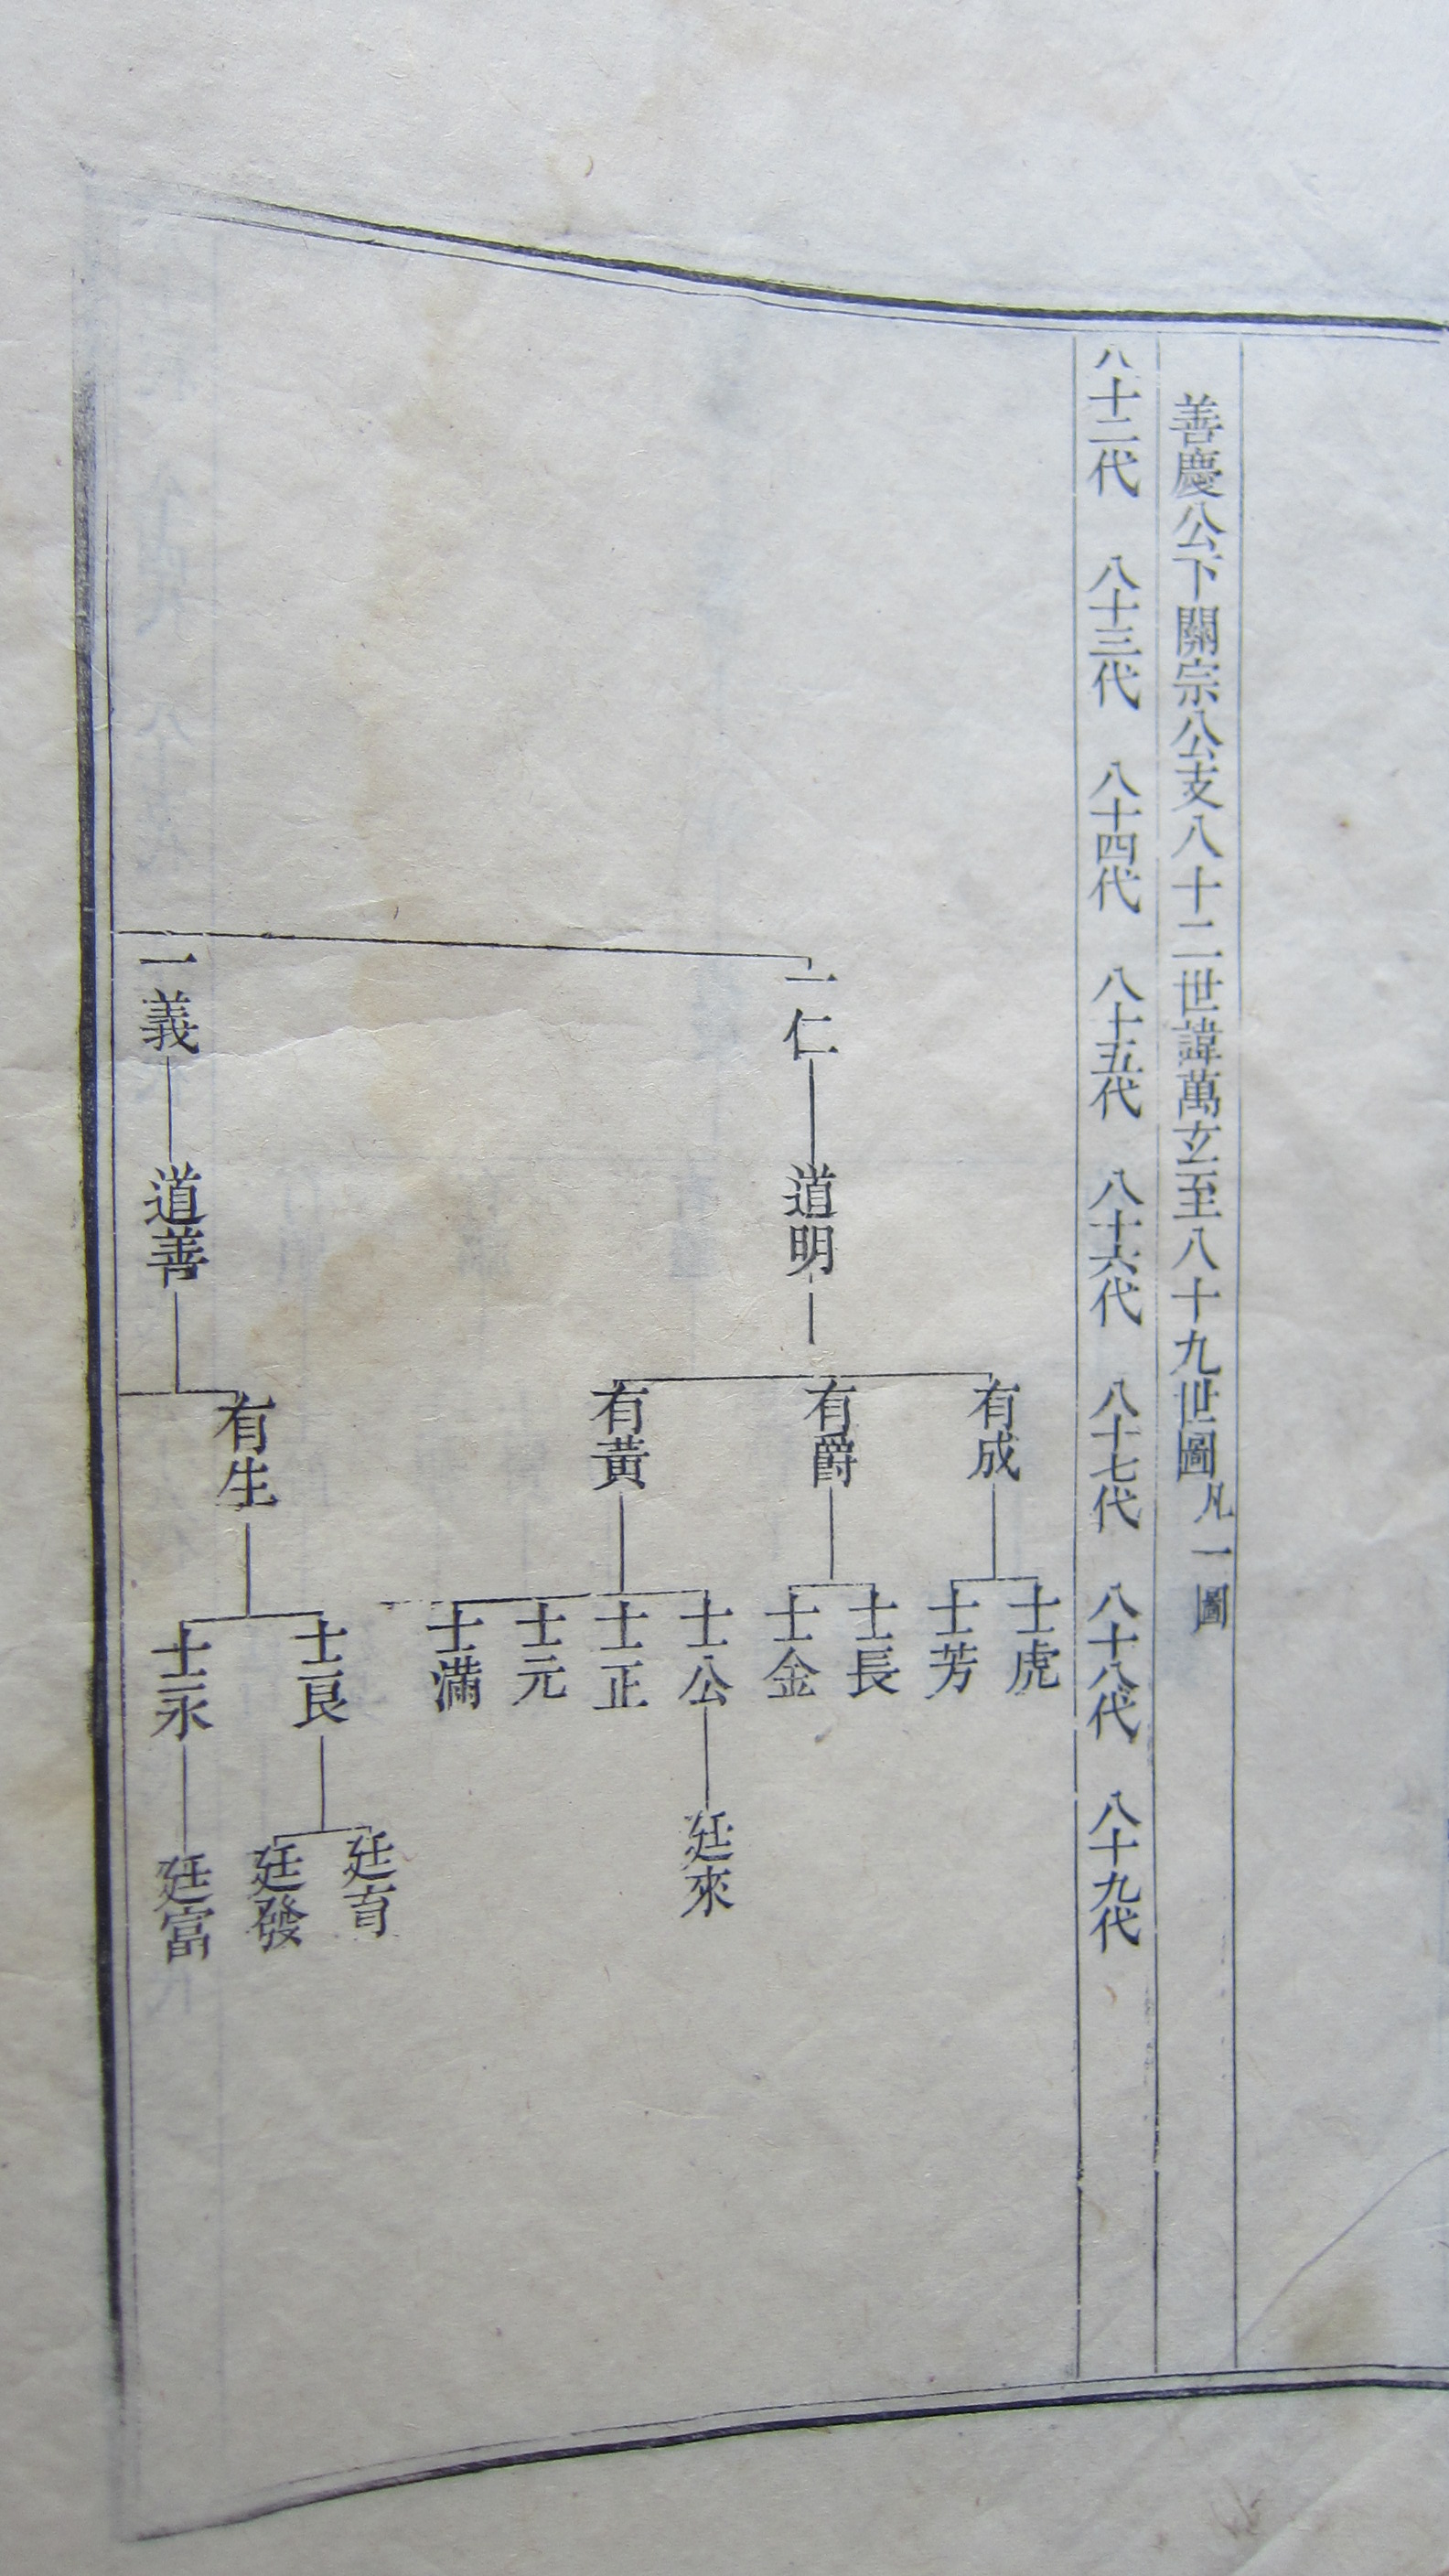 善慶公下關宗公支八十二世諱萬玄至八十九世圖凡一圖
八十二代 八十三代 八十四代 八十五代 八十六代 八十七代 八十八代 八十九代
一仁
道明
有成
士虎
士芳
有爵
士長
士金
有黃
士公
廷來
士正
士元
士滿
一義
道善
有生
士良
廷育
廷發
士永
廷富